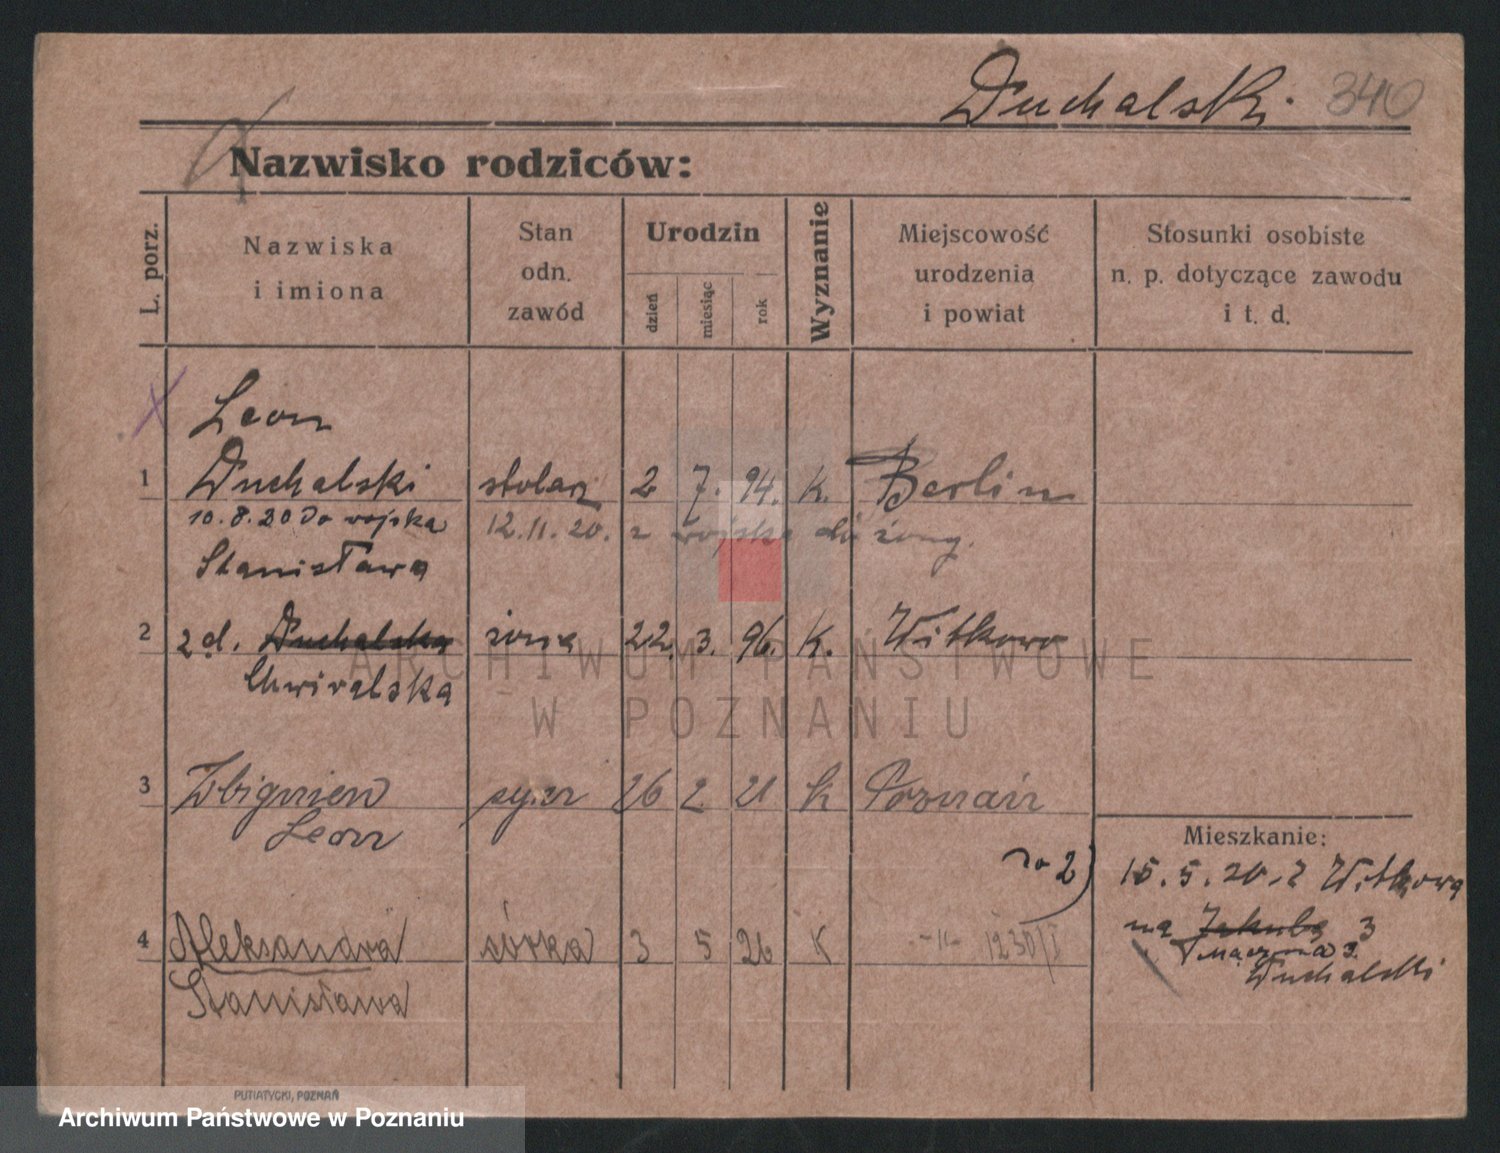 Duchalski. 340
Nazwisko rodziców:
L. porz.
Nazwiska
i imiona
Stan
odn.
zawód
Urodzin
dzień
miesiąc
rok
Wyznanie
Miejscowość
urodzenia
i powiat
Stosunki osobiste
n. p. dotyczące zawodu
i t. d.
Leon
1 Duchalski stolarz 2 7. 94. K. Berlin
10.8.20 Do wojska 12.11.20. z wojska do żony.
Stanisława
2 z d. Duchalska żona 22. 3. 96. K. Witkowo
Chwiralska
3 Zbigniew syn 26 2 21 k Poznań
Leon
Mieszkanie:
15.5.20. z Witkowa
na Jakuba 3
Duchalski
4 Aleksandra córka 3 5 26 K -"- 1230/I
Stanisława
ARCHIWUM PAŃSTWOWE
W POZNANIU
PUTIATYCKI, POZNAŃ
Archiwum Państwowe w Poznaniu